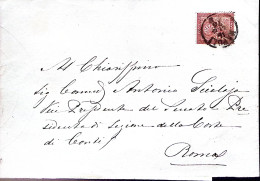 Al Chiarissimo
Sig Comm.e Antonio Scialoja
Vice Presidente del Senato Pre
sidente di Sezione della Corte
di Conti
Roma